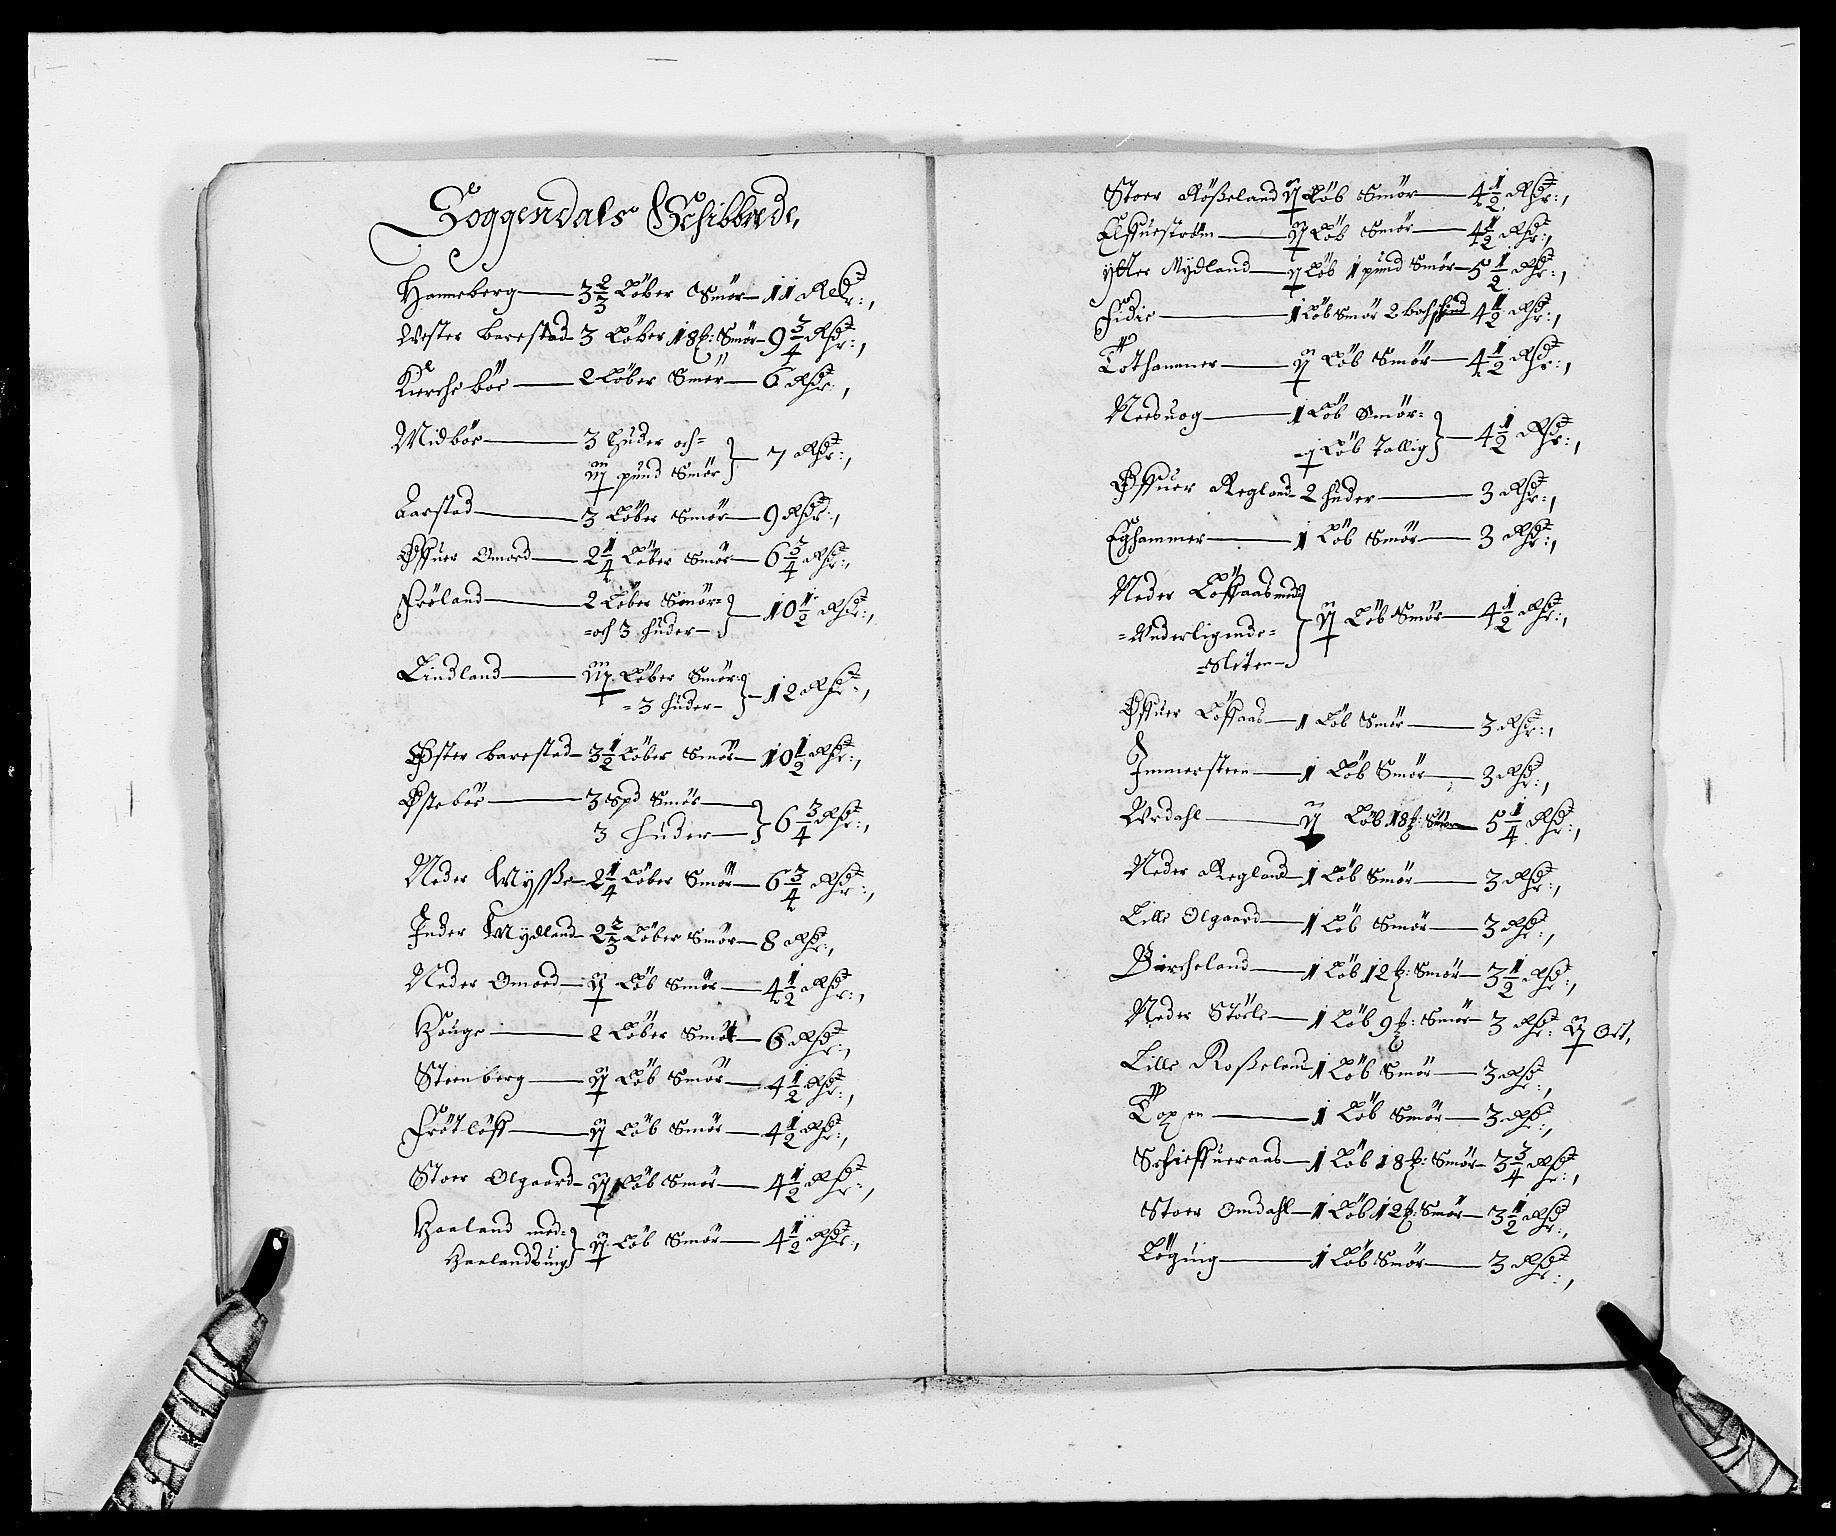 Soggendals Schibbrede,
Hanneberg 3 2/3 Løber Smør 11 Rdr:,
Vester Barestad 3 Løber 18 : Smør 9 3/4 Rdr:,
Kierche bøe 2 Løber Smør 6 Rdr:,
Midbøe 3 Huder och=
pund Smør } 7 Rdr:,
Aarstad 3 Løber Smør 9 Rdr:,
Øffuer Omoed 2 1/4 Løber Smør 6 3/4 Rdr:,
Frøland 2 Løber Smør=
=och 3 Huder } 10 1/2 Rdr:,
Lindland Løber Smør
=3 huder } 12 Rdr:,
Øster Barestad 3 1/2 Løber Smør 10 1/2 Rdr:,
Østebøe 3 Spd Smør
3 Huder } 6 3/4 Rdr:,
Neder Mysse 2 1/4 Løber Smør 6 3/4 Rdr:,
Inder Mydland 2 2/3 Løber Smør 8 Rdr:,
Neder Omoed Løb Smør 4 1/2 Rdr:,
Houge 2 Løber Smør 6 Rdr:,
Steenberg Løb Smør 4 1/2 Rdr:,
Frøtløff Løb Smør 4 1/2 Rdr:,
Stoer Olgaard Løb Smør 4 1/2 Rdr:,
Haaland med=
Haalandsuig } Løb Smør 4 1/2 Rdr:,
Stoer Røßeland Løb Smør 4 1/2 Rdr:,
Elffuestrøm Løb Smør 4 1/2 Rdr:,
ytter Mydland Løb 1 pund Smør 5 1/2 Rdr:,
Fidie 1 Løb Smør 2 bochskind 4 1/2 Rdr:,
Tothammer Løb Smør 4 1/2 Rdr:,
Neesuog 1 Løb Smør=
Løb Tallig } 4 1/2 Rdr:,
Øffuer Regland 2 huder 3 Rdr:,
Eghammer 1 Løb Smør 3 Rdr:,
Neder Løffaas med
=Underligende=
=Sleten } Løb Smør 4 1/2 Rdr:,
Øffuer Løffaas 1 Løb Smør 3 Rdr:,
Immersteen 1 Løb Smør 3 Rdr:,
Urdahl Løb 18 : Smør 5 1/4 Rdr:,
Neder Regland 1 Løb Smør 3 Rdr:,
Lille Olgaard 1 Løb Smør 3 Rdr:,
Bircheland 1 Løb 12 : Smør 3 1/2 Rdr:,
Neder Støele 1 Løb 9 : Smør 3 Rdr: Ort,
Lille Roßeland 1 Løb Smør 3 Rdr:,
Topen 1 Løb Smør 3 Rdr:,
Schieffueraas 1 Løb 18 : Smør 3 3/4 Rdr:,
Stoer Omdahl 1 Løb 12 : Smør 3 1/2 Rdr:,
Løguig 1 Løb Smør 3 Rdr:,